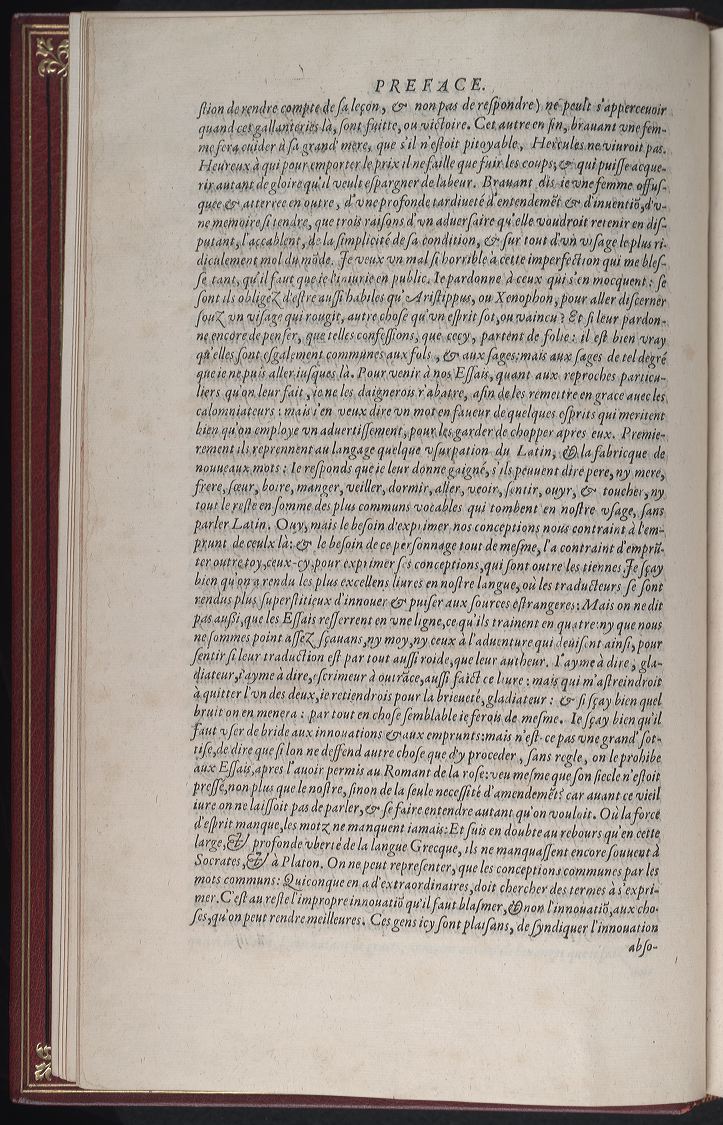 PREFACE.
ſtion de rendre compte de ſa leçon, & non pas de reſpondre) ne peult s'apperceuoir
quand ces gallanteries là, ſont fuitte, ou victoire. Cet autre en fin, brauant vne fem-
me fera cuider à ſa grand' mere, que s'il n'eſtoit pitoyable, Hercules ne viuroit pas.
Heureux à qui pour emporter le prix il ne faille que fuir les coups; & qui puiſſe acque-
rir autant de gloire qu'il veult eſpargner de labeur. Brauant dis-ie vne femme offuſ-
quée & atterrée en outre, d'vne profonde tardiueté d'entendemēt & d'inuentiō, d'v-
ne memoire ſi tendre, que trois raiſons d'vn aduerſaire qu'elle voudroit retenir en diſ-
putant, l'accablent, de la ſimplicité de ſa condition, & ſur tout d'vn viſage le plus ri-
diculement mol du mōde. Je veux vn mal ſi horrible à cette imperfection qui me bleſ-
ſe tant, qu'il faut que ie l'iniurie en public. Ie pardonne à ceux qui s'en mocquent: ſe
ſont ils obligeZ d'eſtre auſſi habiles qu'Ariſtippus, ou Xenophon, pour aller diſcerner
ſouZ vn viſage qui rougit, autre choſe qu'vn eſprit ſot, ou vaincu? Et ſi leur pardon-
ne encore de penſer, que telles confeſſions, que cecy, partent de folie: il eſt bien vray
qu'elles ſont eſgalement communes aux fols, & aux ſages: mais aux ſages de tel degré
que ie ne puis aller iuſques là. Pour venir à nos Eſſais, quant aux reproches particu-
liers qu'on leur fait, ie ne les daignerois r'abatre, afin de les remettre en grace auec les
calomniateurs: mais i'en veux dire vn mot en faueur de quelques eſprits qui meritent
bien qu'on employe vn aduertiſſement, pour les garder de chopper apres eux. Premie-
rement ils reprennent au langage quelque vſurpation du Latin, & la fabricque de
nouueaux mots: Ie reſponds que ie leur donne gaigné, s'ils peuuent dire pere, ny mere,
frere, ſœur, boire, manger, veiller, dormir, aller, veoir, ſentir, ouyr, & toucher, ny
tout le reſte en ſomme des plus communs vocables qui tombent en noſtre vſage, ſans
parler Latin. Ouy, mais le beſoin d'exprimer nos conceptions nous contraint à l'em-
prunt de ceulx là: & le beſoin de ce perſonnage tout de meſme, l'a contraint d'emprū-
ter outre toy, ceux-cy, pour exprimer ſes conceptions, qui ſont outre les tiennes. Je ſçay
bien qu'on a rendu les plus excellens liures en noſtre langue, où les traducteurs ſe ſont
rendus plus ſuperſtitieux d'innouer & puiſer aux ſources eſtrangeres: Mais on ne dit
pas auſſi, que les Eſſais reſſerrent en vne ligne, ce qu'ils trainent en quatre: ny que nous
ne ſommes point aſſeZ ſçauans, ny moy, ny ceux à l'aduenture qui deuiſent ainſi, pour
ſentir ſi leur traduction eſt par tout auſſi roide, que leur autheur. I'ayme à dire, gla-
diateur, i'ayme à dire, eſcrimeur à outrāce, auſſi faict ce liure: mais qui m'aſtreindroit
à quitter l'vn des deux, ie retiendrois pour la brieueté, gladiateur: & ſi ſçay bien quel
bruit on en menera: par tout en choſe ſemblable ie ferois de meſme. Ie ſçay bien qu'il
faut vſer de bride aux innouations & aux emprunts: mais n'eſt-ce pas vne grand' ſot-
tiſe, de dire que ſi lon ne deffend autre choſe que d'y proceder, ſans regle, on le prohibe
aux Eſſais, apres l'auoir permis au Romant de la roſe: veu meſme que ſon ſiecle n'eſtoit
preſſé, non plus que le noſtre, ſinon de la ſeule neceſſité d'amendemēt? car auant ce vieil
iure on ne laiſſoit pas de parler, & ſe faire entendre autant qu'on vouloit. Où la force
d'eſprit manque, les motZ ne manquent iamais: Et ſuis en doubte au rebours qu'en cette
large, & profonde vberté de la langue Grecque, ils ne manquaſſent encore ſouuent à
Socrates, & à Platon. On ne peut repreſenter, que les conceptions communes par les
mots communs: Quiconque en a d'extraordinaires, doit chercher des termes à s'expri-
mer. C'eſt au reſte l'impropre innouatiō qu'il faut blaſmer, & non l'innouatiō, aux cho-
ſes, qu'on peut rendre meilleures. Ces gens icy ſont plaiſans, de ſyndiquer l'innouation
abſo-